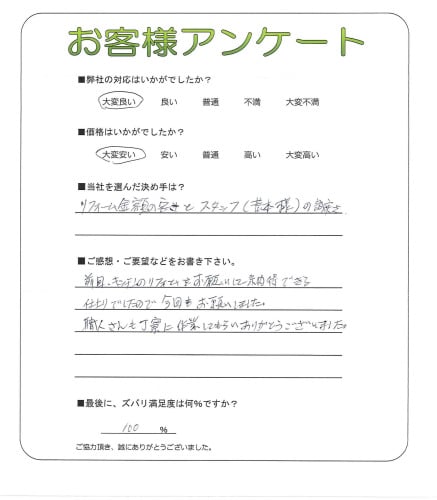 お客様アンケート
■弊社の対応はいかがでしたか？
大変良い 良い 普通 不満 大変不満
■価格はいかがでしたか？
大変安い 安い 普通 高い 大変高い
■当社を選んだ決め手は？
リフォーム金額の安さとスタッフ(吉本様)の誠実さ
■ご感想・ご要望などをお書き下さい。
前回、キッチンのリフォームをお願いして納得できる
仕上りでしたので今回もお願いしました。
職人さんも丁寧に作業してもらいありがとうございました。
■最後に、ズバリ満足度は何％ですか？
100 %
ご協力頂き、誠にありがとうございました。